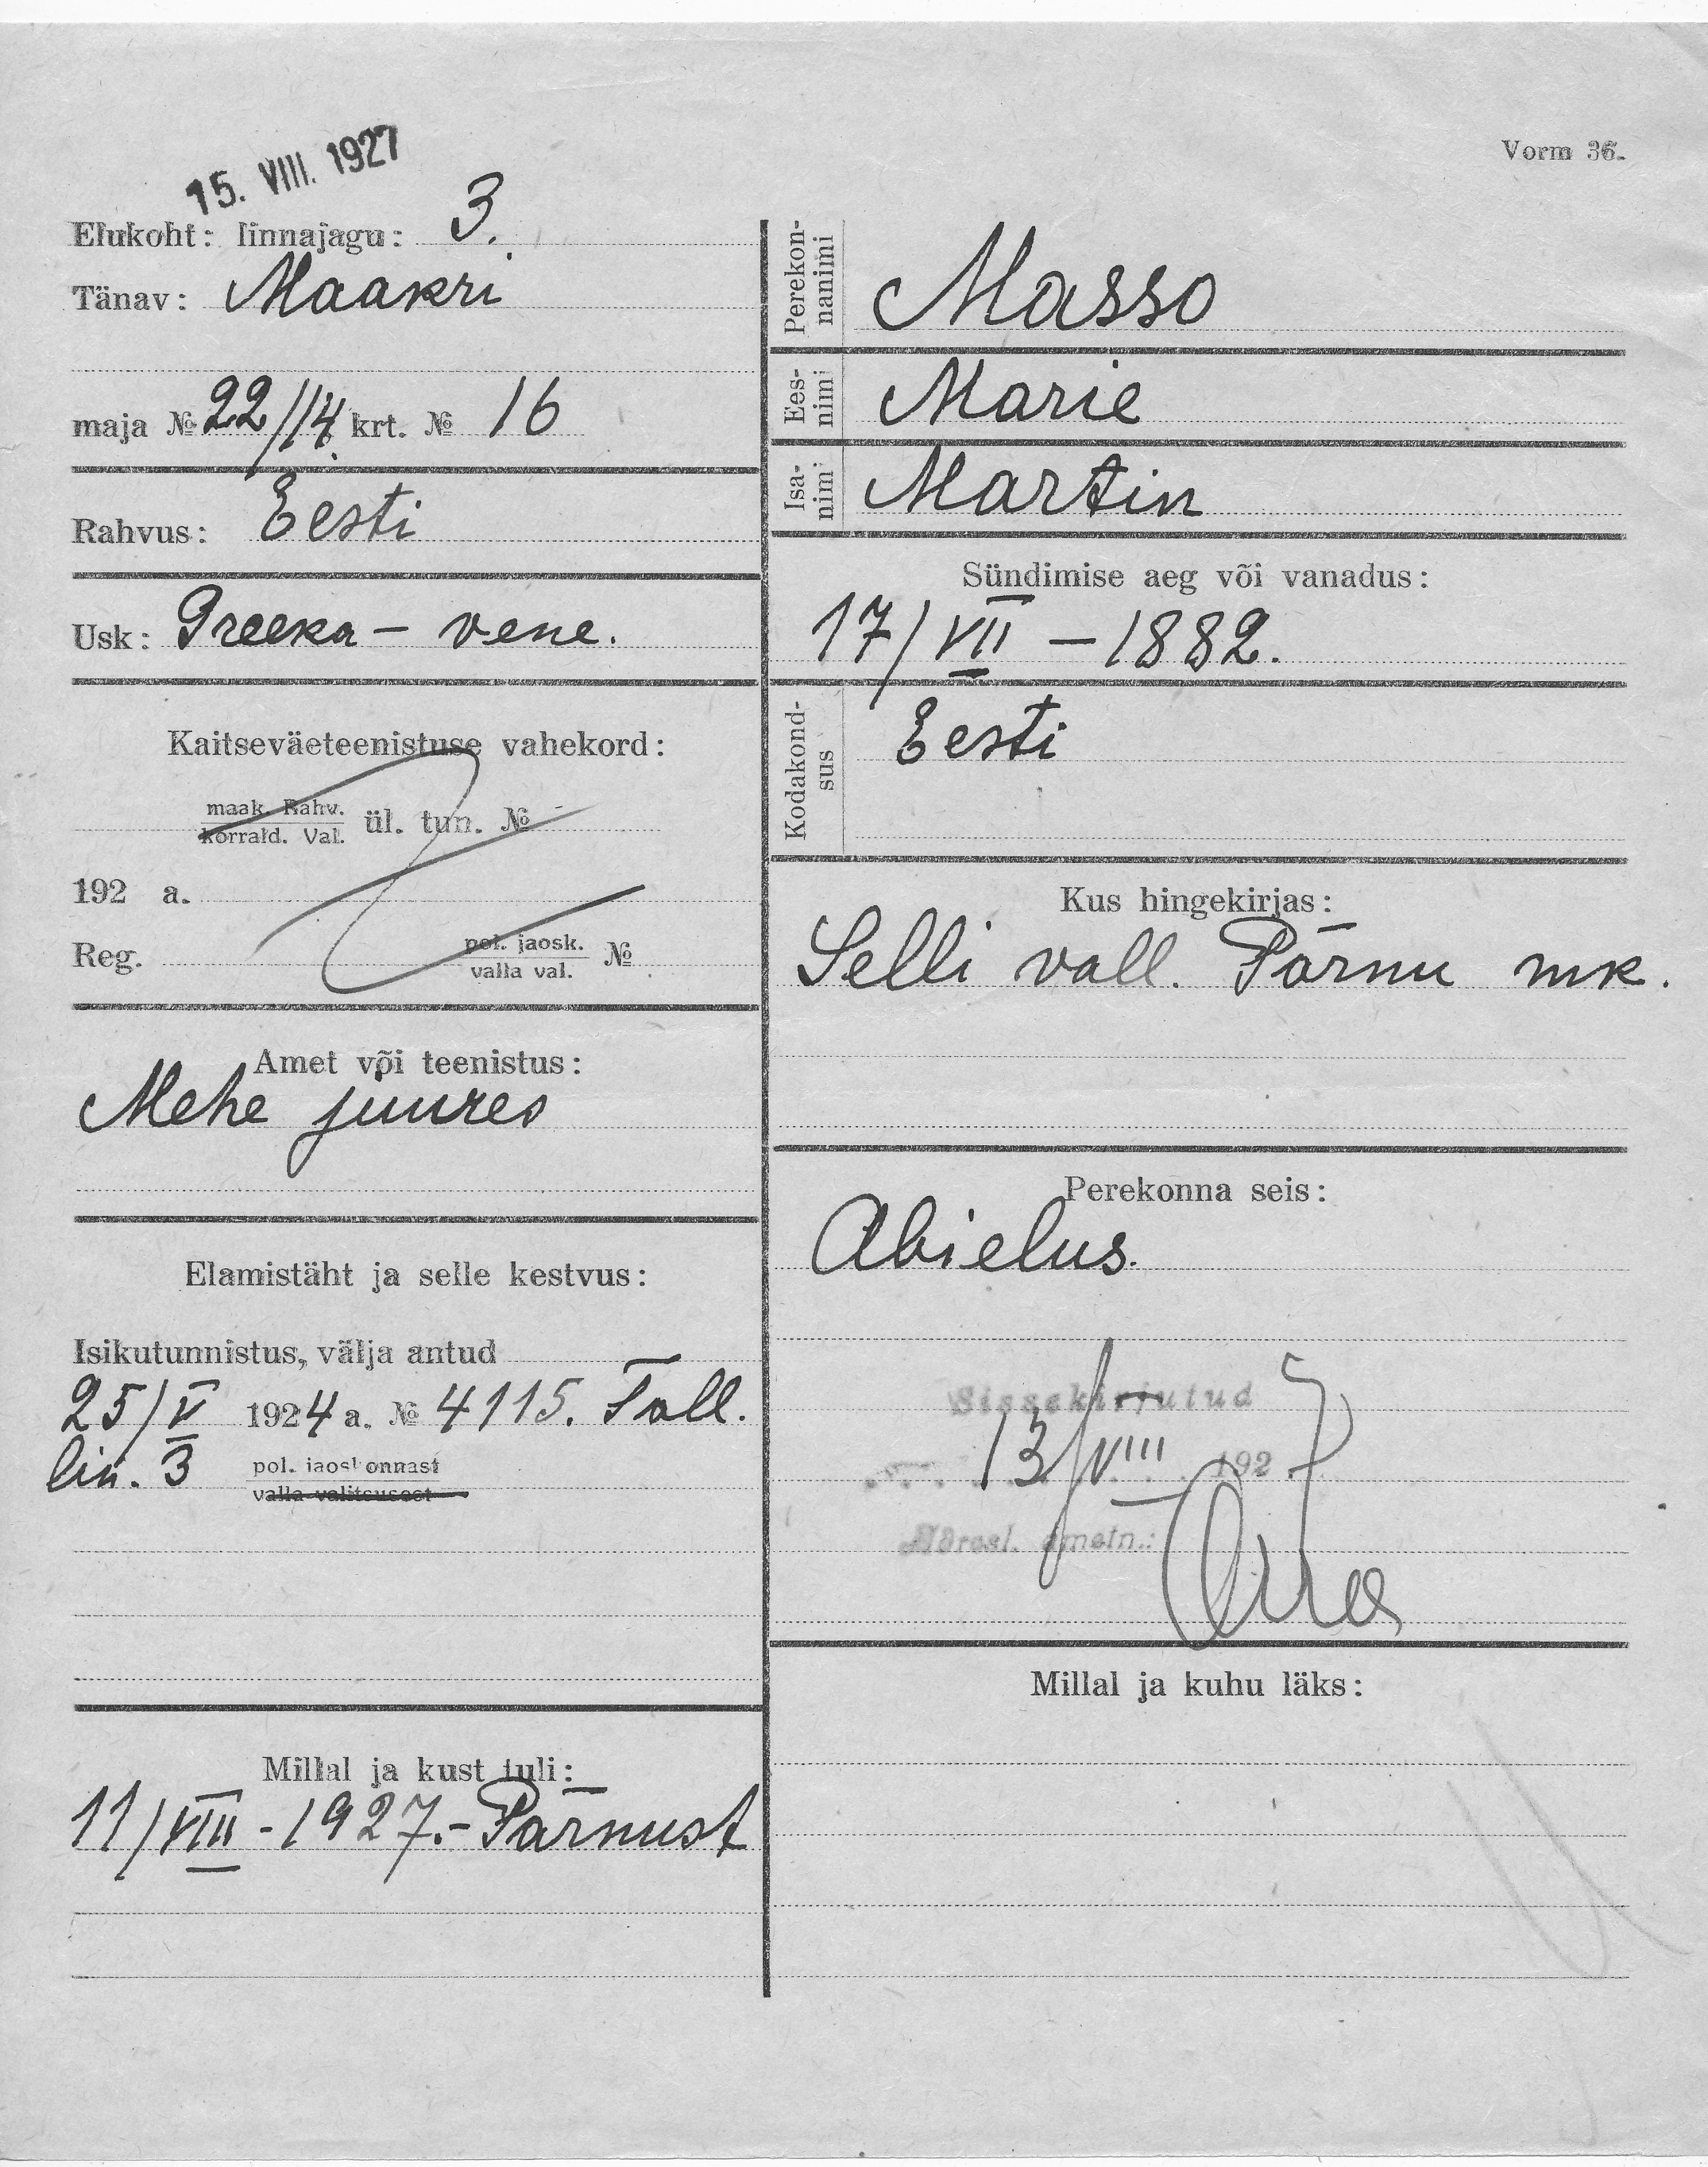 15. VIII. 1927
Vorm 36.
Elukoht: linnajagu: 3.
Tänav: Maakri
maja № 22/14. krt. № 16
Rahvus: Eesti
Usk: Greeka – vene.
Kaitseväeteenistuse vahekord:
maak. Rahv.
korrald. Val. ül. tun. №
192 a.
Reg. pol. jaosk.
valla val. №
Amet või teenistus:
Mehe juures
Elamistäht ja selle kestvus:
Isikutunnistus, välja antud
25/V 1924 a. № 4115. Tall.
lin. 3 pol. jaoskonnast
valla valitsusest
Millal ja kust tuli:
11/VIII - 1927.- Pärnust
Perekon-
nanimi Masso
Ees-
nimi Marie
Isa-
nimi Martin
Sündimise aeg või vanadus:
17/VII – 1882.
Kodakond-
sus Eesti
Kus hingekirjas:
Selli vall. Pärnu mk.
Perekonna seis:
Abielus.
Sissekirjutud
13/VIII 1927
Adresl. ametn.:
Millal ja kuhu läks: